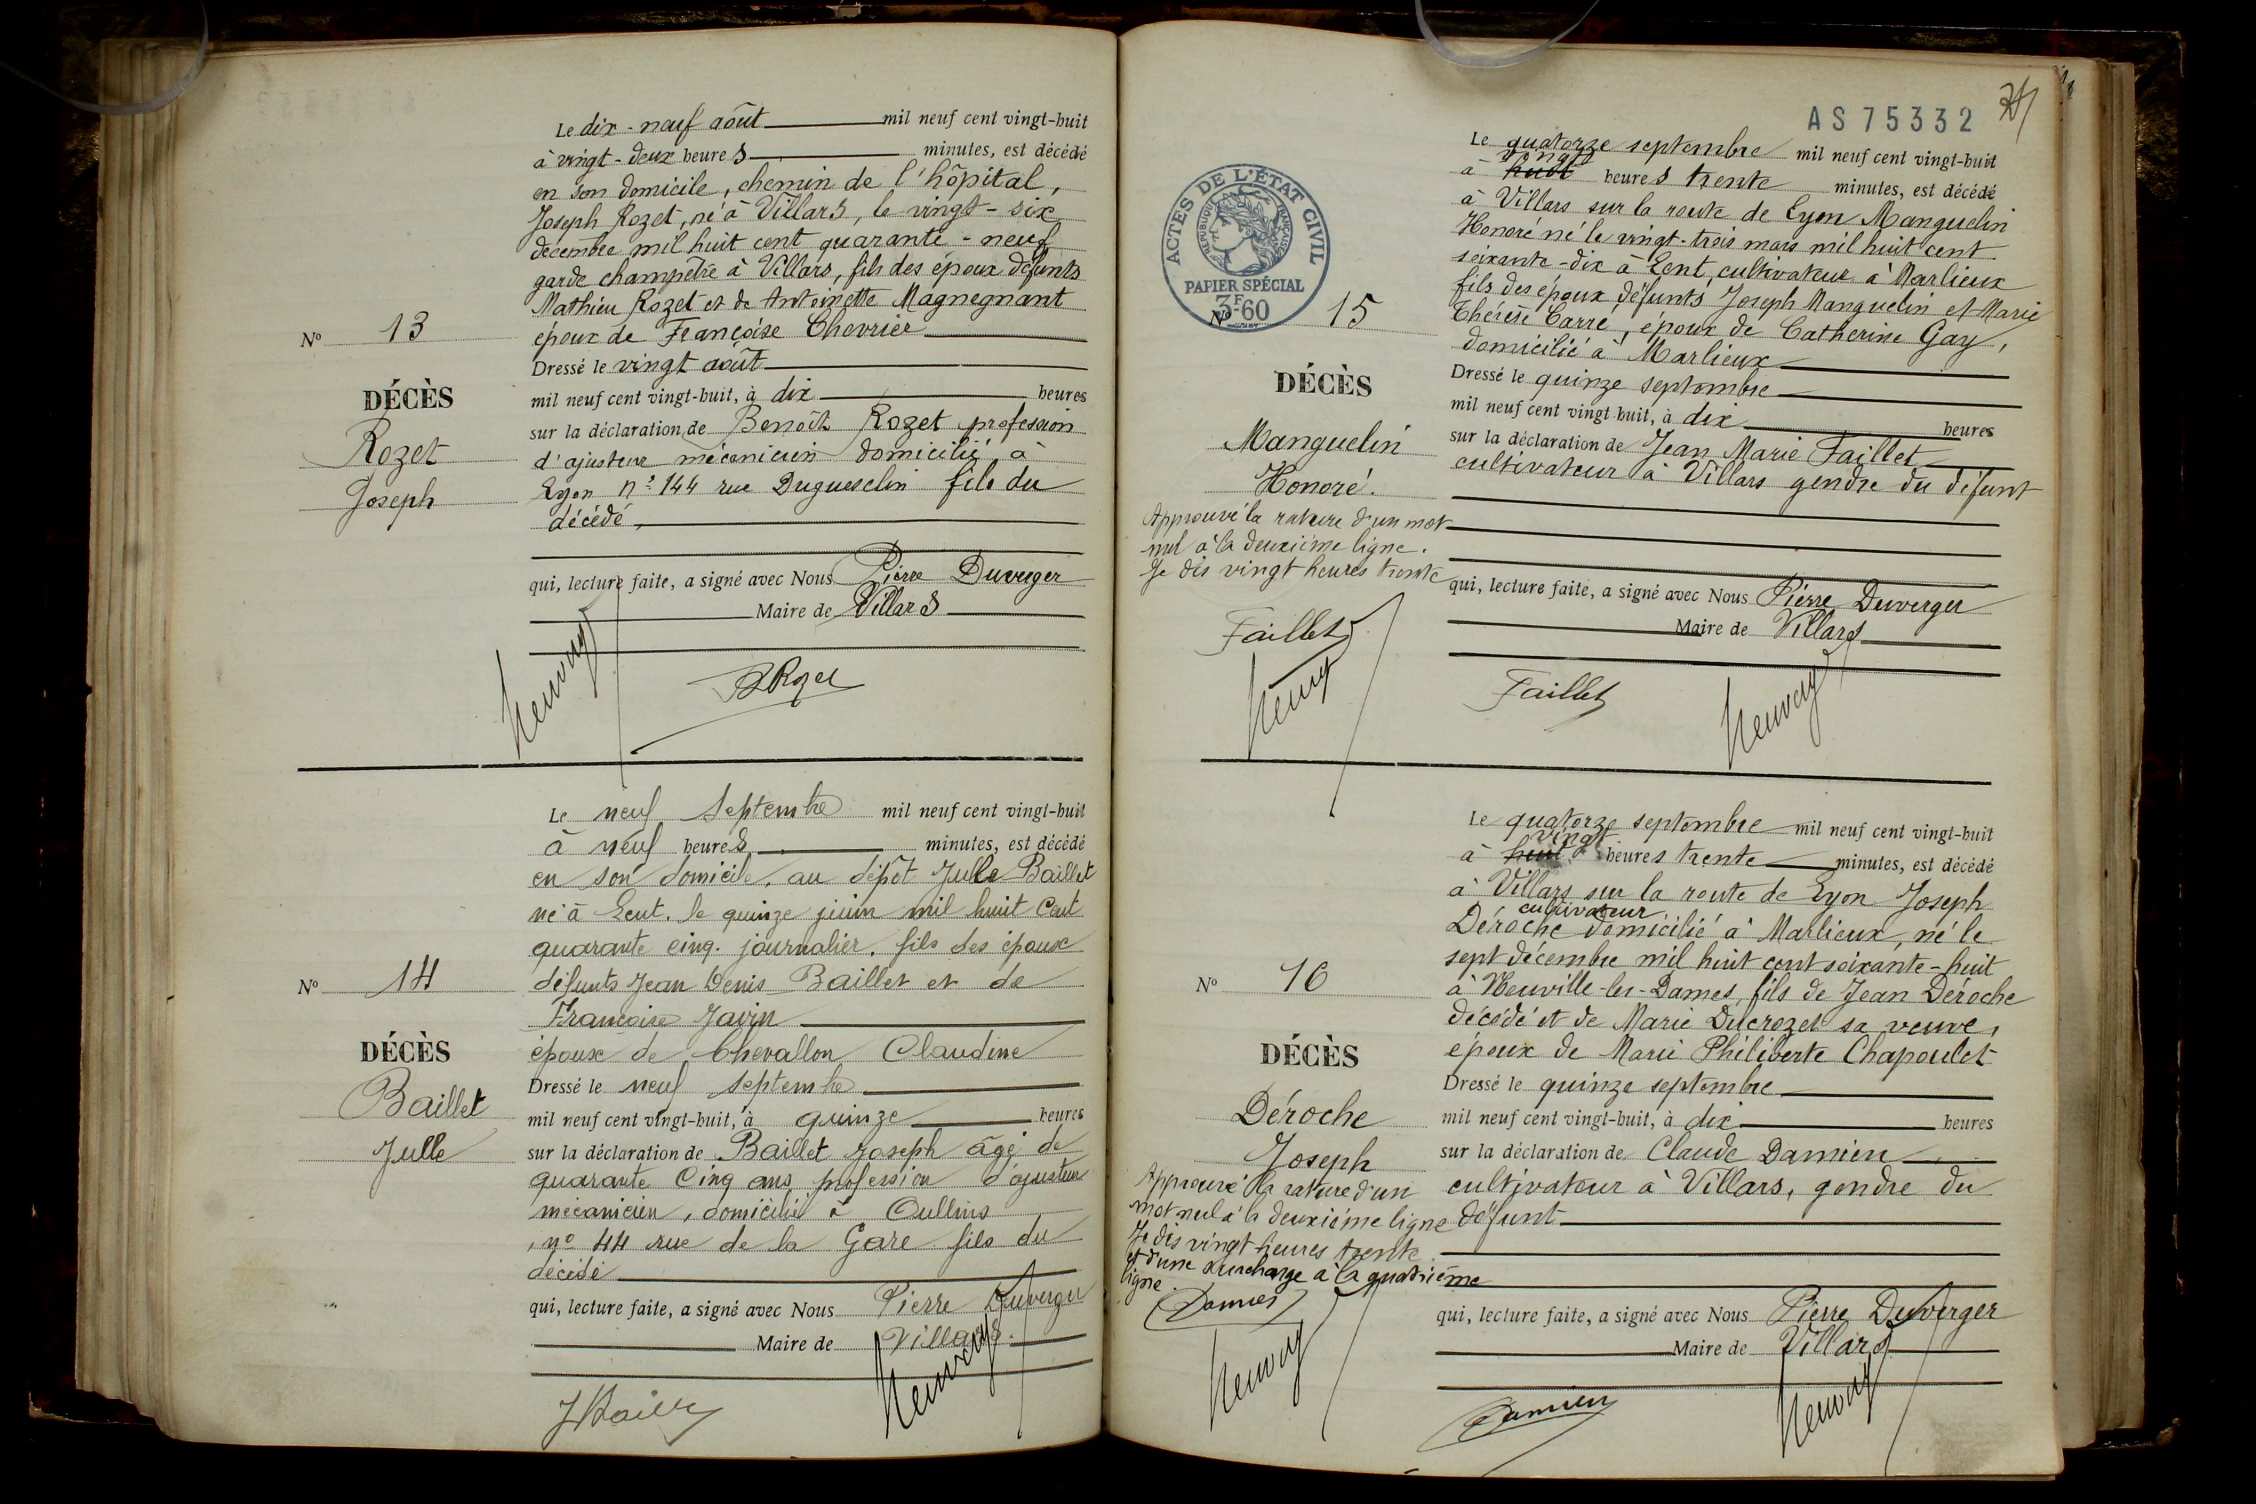 Le dix-neuf août mil neuf cent vingt-huit
à vingt-deux heures minutes, est décédé
en son domicile, chemin de l'hôpital,
Joseph Rozet, né à Villars, le vingt-six
décembre mil huit cent quarante-neuf
garde champêtre à Villars, fils des époux défunts
Mathieu Rozet et de Antoinette Magnegnant
époux de Françoise Chevrier
Dressé le vingt août
mil neuf cent vingt-huit, à dix heures
sur la déclaration de Benoît Rozet profession
d'ajusteur mécanicien domicilié à
Lyon n° 144 rue Duguesclin fils du
décédé,
qui, lecture faite, a signé avec Nous Pierre Duverger
Maire de Villars
No 13
DÉCÈS
Rozet
Joseph
BRozet
Le neuf Septembre mil neuf cent vingt-huit
à neuf heures minutes, est décédé
en son domicile, au dépôt Julle Baillet
né à Lent, le quinze juin mil huit cent
quarante cinq. journalier. fils des époux
défunts Jean Denis Baillet et de
Françoise Javin
époux de Chevallon Claudine
Dressé le neuf septembre
mil neuf cent vingt-huit, à quinze heures
sur la déclaration de Baillet Joseph âgé de
quarante Cinq ans profession d'ajusteur
mécanicien, domicilié à Oullins
, no 44 rue de la Gare fils du
décédé
qui, lecture faite, a signé avec Nous Pierre Duverger
Maire de Villars.
No 14
DÉCÈS
Baillet
Julle
JBaillet
AS 75332
ACTES DE L'ÉTAT CIVIL
RÉPUBLIQUE FRANÇAISE
PAPIER SPÉCIAL
3F60
Le quatorze septembre mil neuf cent vingt-huit
vingt
à huit heures trente minutes, est décédé
à Villars sur la route de Lyon Manguelin
Honoré né le vingt-trois mars mil huit cent
soixante-dix à Lent, cultivateur à Marlieux
fils des époux défunts Joseph Manguelin et Marie
Thérèse Carré, époux de Catherine Gay,
domicilié à Marlieux
Dressé le quinze septembre
mil neuf cent vingt-huit, à dix heures
sur la déclaration de Jean Marie Faillet
cultivateur à Villars gendre du défunt
qui, lecture faite, a signé avec Nous Pierre Duverger
Maire de Villars
No 15
DÉCÈS
Manguelin
Honoré.
Approuvé la rature d'un mot
nul à la deuxième ligne.
Je dis vingt heures trente
Faillet
Faillet
Le quatorze septembre mil neuf cent vingt-huit
vingt
à huit heures trente minutes, est décédé
à Villars sur la route de Lyon Joseph
cultivateur
Déroche domicilié à Marlieux, né le
sept décembre mil huit cent soixante-huit
à Neuville-les-Dames, fils de Jean Déroche
décédé et de Marie Ducrozet sa veuve,
époux de Marie Philiberte Chapoulet
Dressé le quinze septembre
mil neuf cent vingt-huit, à dix heures
sur la déclaration de Claude Damien
cultivateur à Villars, gendre du
défunt
qui, lecture faite, a signé avec Nous Pierre Duverger
Maire de Villars
No 16
DÉCÈS
Déroche
Joseph
Approuvé la rature d'un
mot nul à la deuxième ligne
Je dis vingt heures trente
et d'une surcharge à la quatrième
ligne.
Damien
Damien